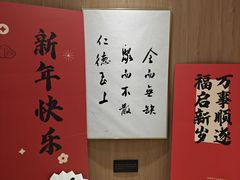 新年快乐
全而無缺
聚而不散
仁德至上
万事順遂
福启新岁